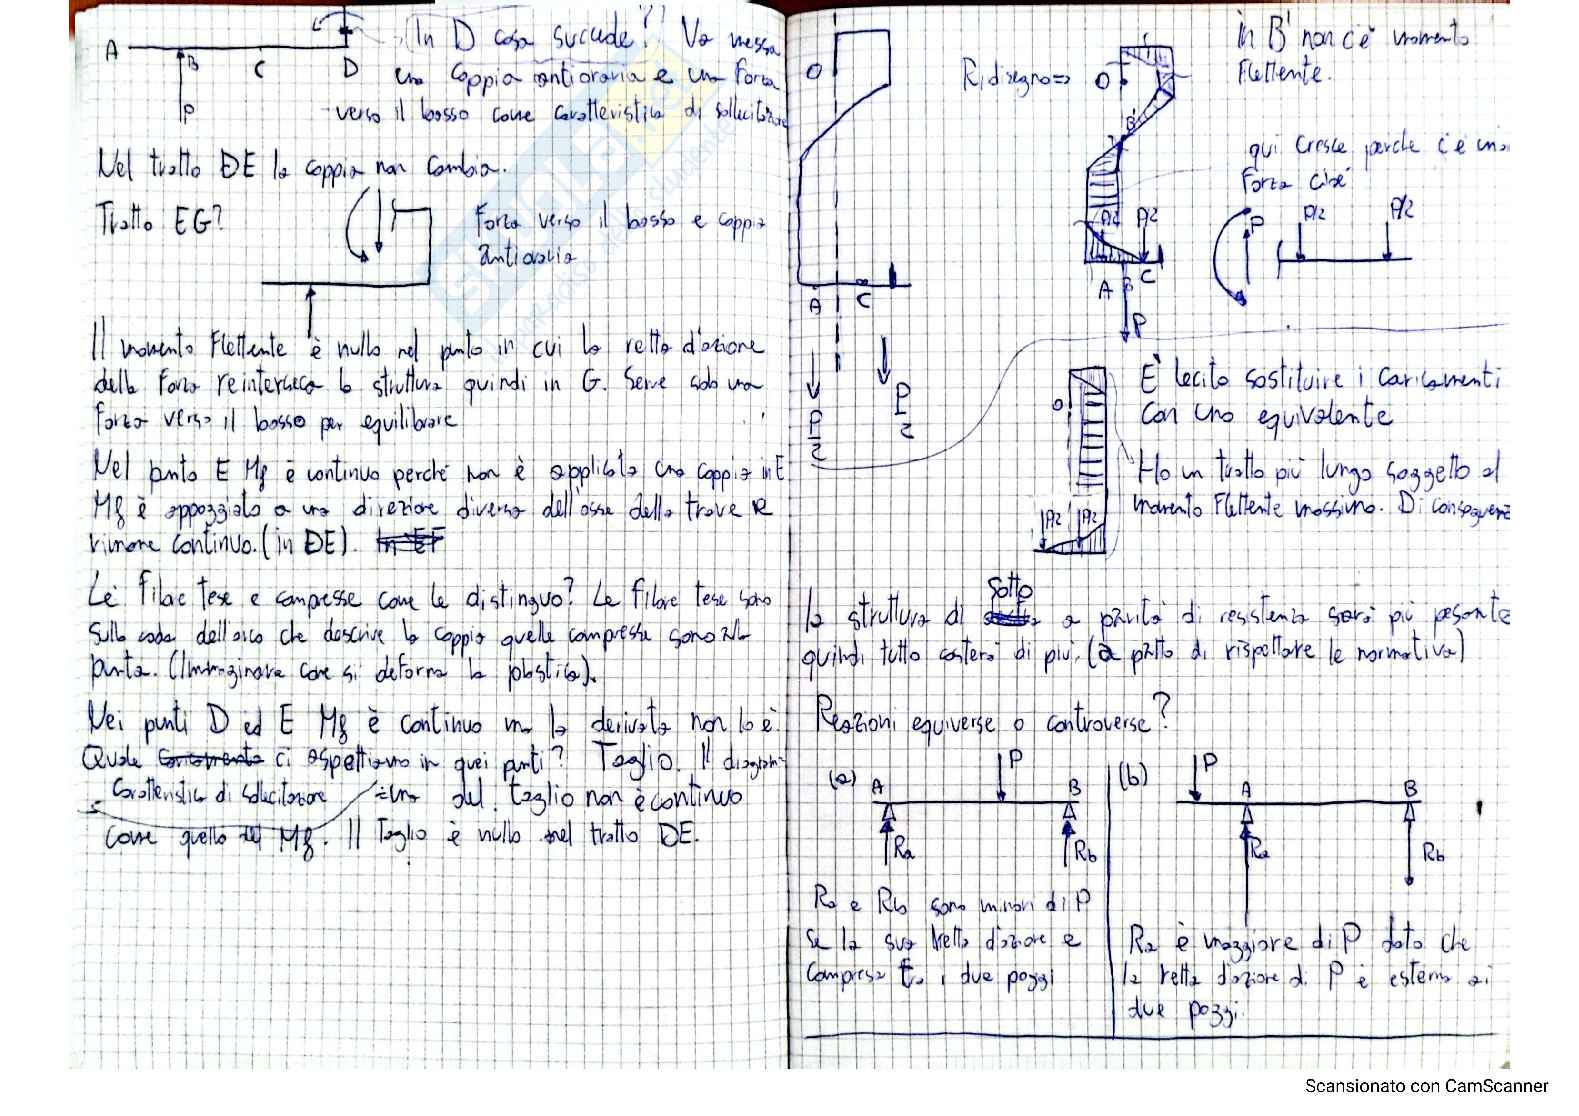 A
B
C
D
P
In D cosa succede? Va messa
una coppia antioraria e una forza
verso il basso come caratteristica di sollecitazione
Nel tratto DE la coppia non cambia.
Tratto EG?
Forza verso il basso e coppia
antioraria
Il momento Flettente è nullo nel punto in cui la retta d'azione
della forza reinterseca la struttura quindi in G. Serve solo una
forza verso il basso per equilibrare
Nel punto E Mf è continuo perché non è applicata una coppia in E
Mf è appoggiato a una direzione diversa dell'asse della trave e
rimane continuo. (in DE).
Le fibre tese e compresse come le distinguo? Le fibre tese sono
sulla coda dell'arco che descrive la coppia quelle compresse sono alla
punta. (Immaginare come si deforma la plastica).
Nei punti D ed E Mf è continuo ma la derivata non lo è.
Quale ci aspettiamo in quei punti? Taglio. Il diagram-
Caratteristica di sollecitazione
ma del taglio non è continuo
come quello del Mf. Il Taglio è nullo nel tratto DE.
O
A
C
P/2
P/2
Ridisegno=>
O
B'
P/2
P/2
A
B
C
P
in B' non c'è momento
Flettente.
qui cresce perché c'è una
Forza cioè
P
P/2
P/2
O
P/2
P/2
È lecito sostituire i caricamenti
con uno equivalente
Ho un tratto più lungo soggetto al
momento Flettente massimo. Di conseguenza
la struttura di sotto a parità di resistenza sarà più pesante
quindi tutto costerà di più. (a patto di rispettare le normative)
Reazioni equiverse o controverse?
(a)
A
P
B
Ra
Rb
Ra e Rb sono minori di P
se la sua retta d'azione è
compresa tra i due poggi
(b)
P
A
B
Ra
Rb
Ra è maggiore di P dato che
la retta d'azione di P è esterna ai
due poggi.
Scansionato con CamScanner